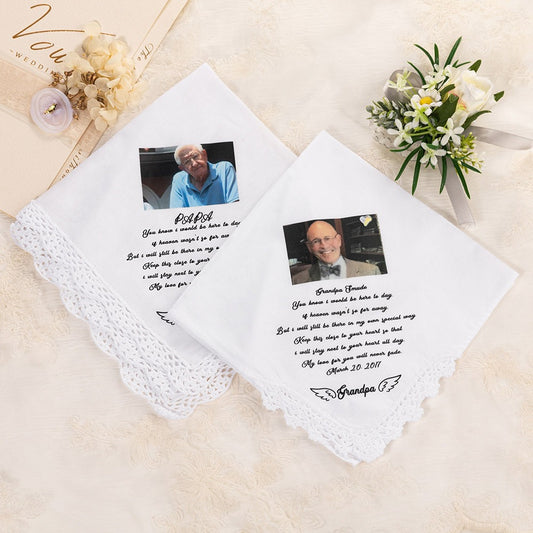 You
WEDDING
The
PAPA
You know i would be here to day
if heaven wasn't so far away
But i will still be there in my
Keep this close to your
i will stay next to
My love for
Grandpa Smude
You know i would be here to day
if heaven wasn't so far away
But i will still be there in my own special way
Keep this close to your heart so that
i will stay next to your heart all day
My love for you will never fade
March 20 2017
Grandpa